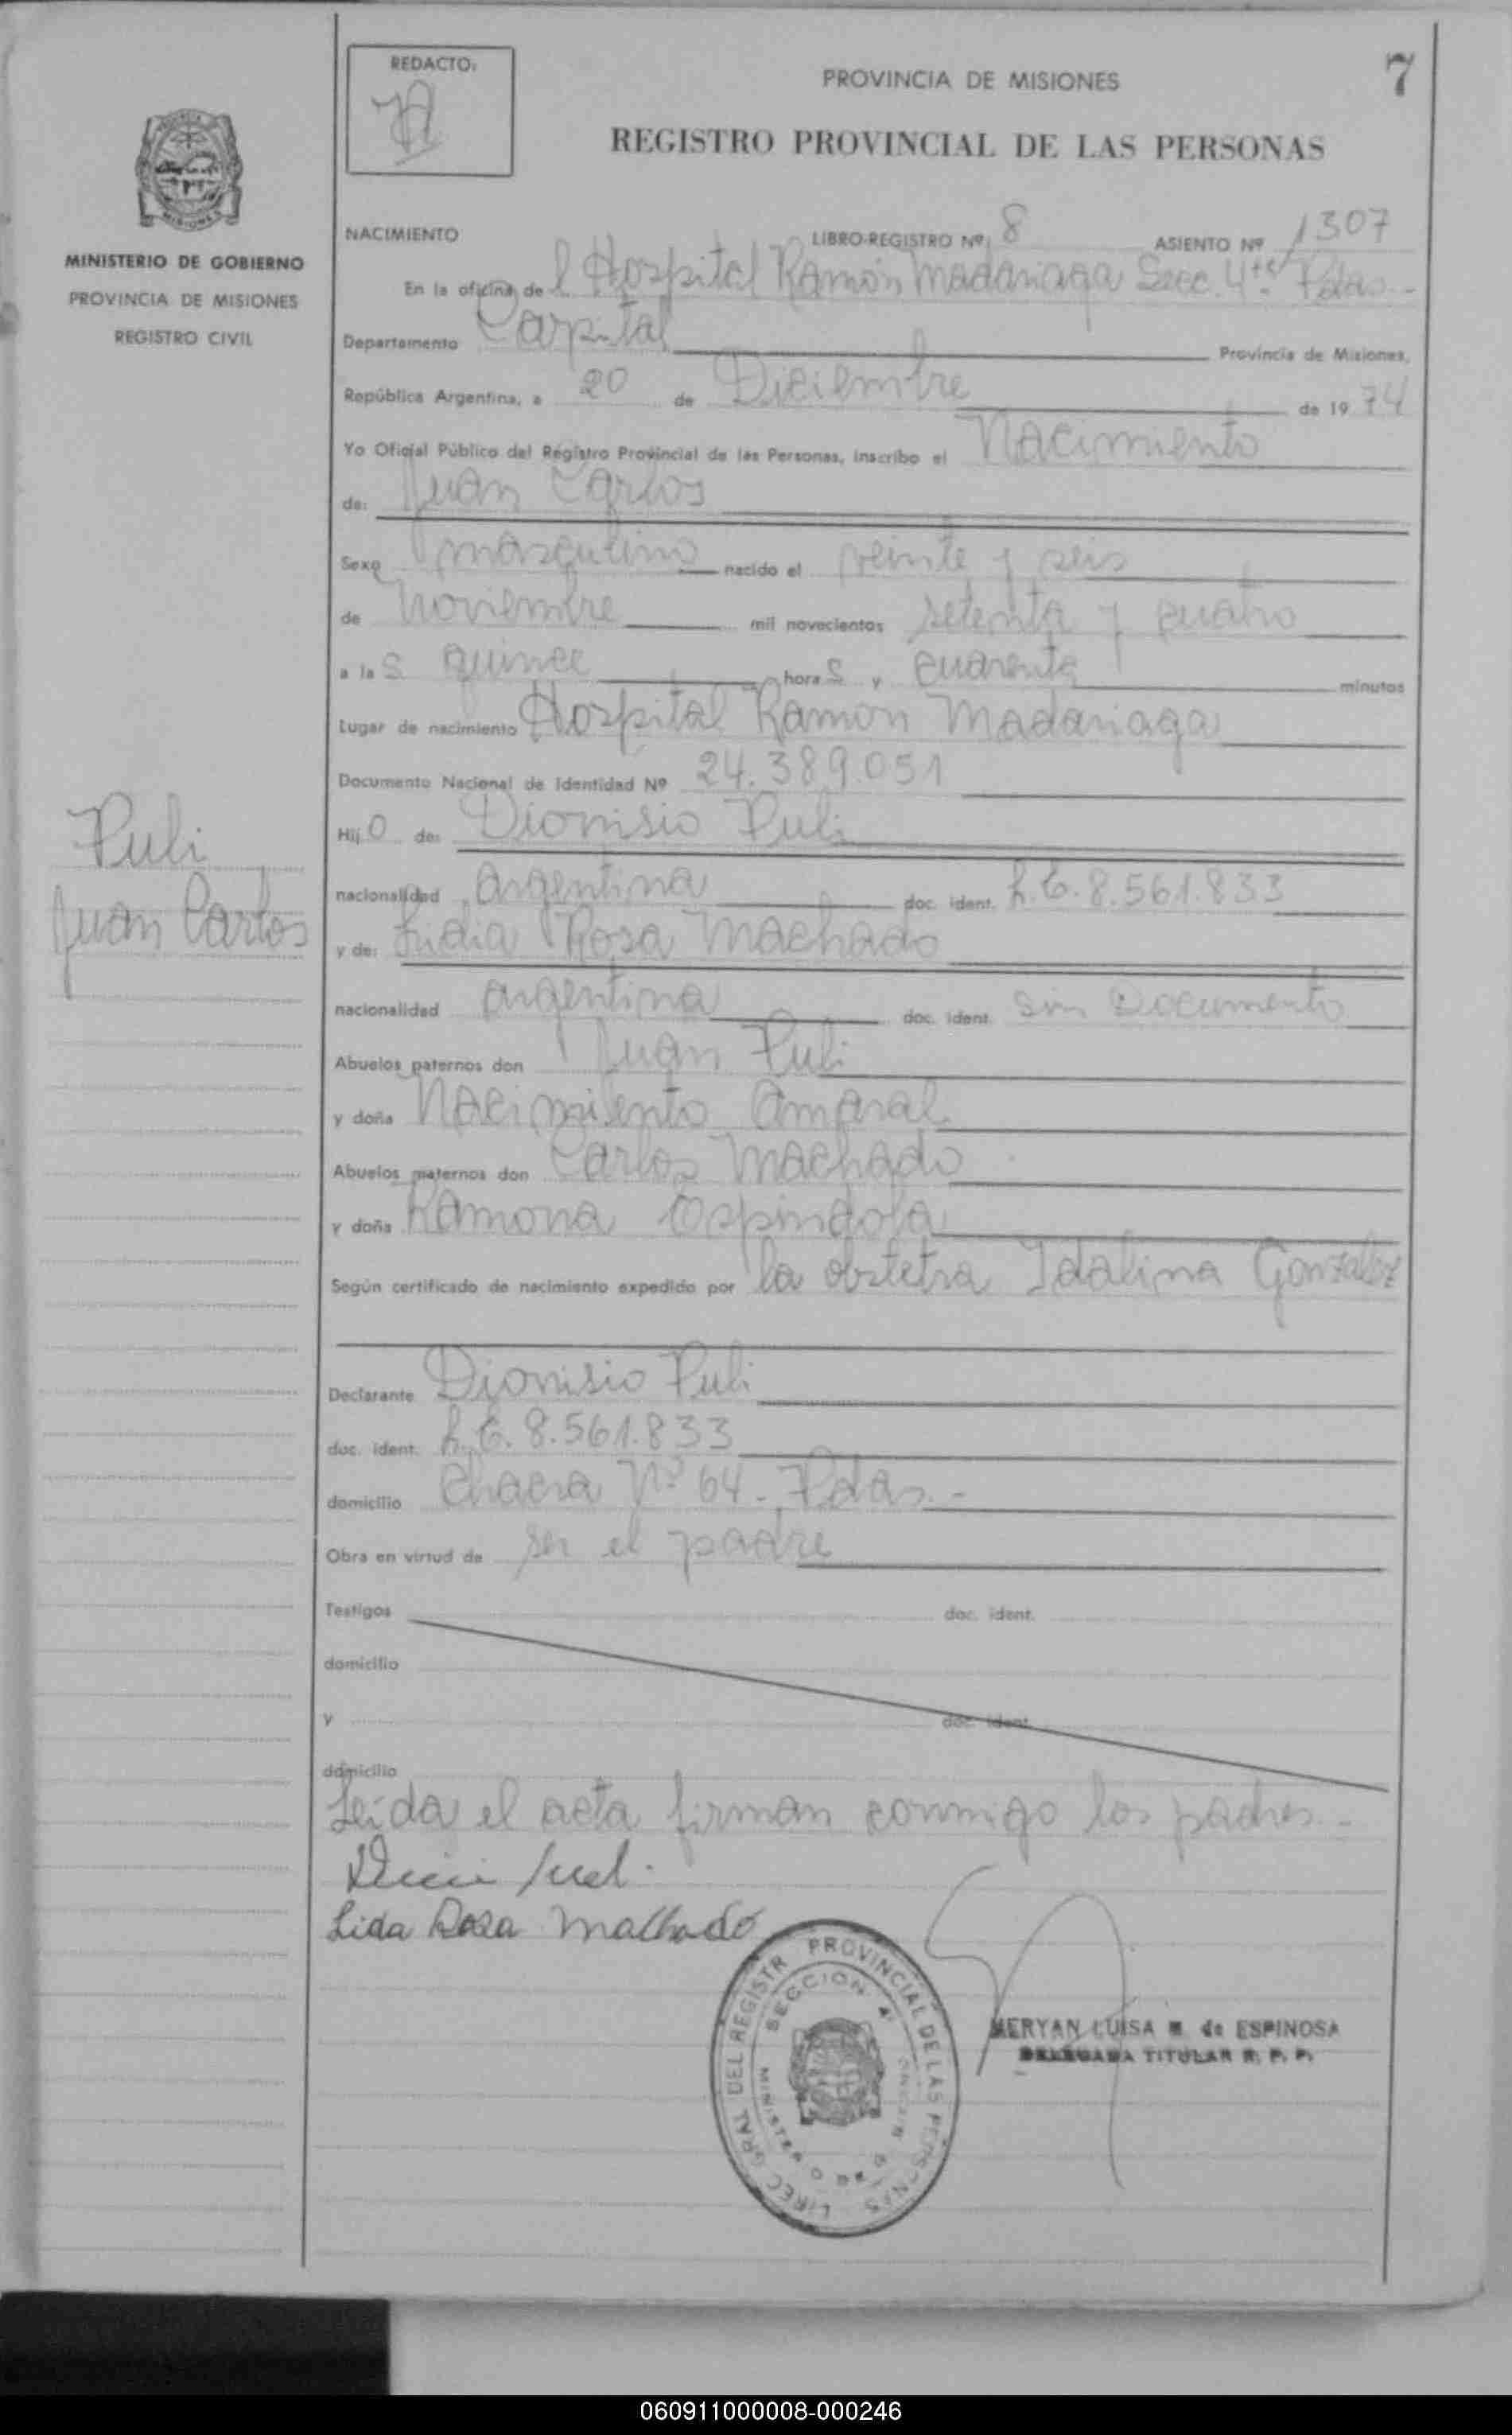 REDACTO:
PROVINCIA DE MISIONES
7
REGISTRO PROVINCIAL DE LAS PERSONAS
MINISTERIO DE GOBIERNO
PROVINCIA DE MISIONES
REGISTRO CIVIL
NACIMIENTO LIBRO-REGISTRO Nº 8 ASIENTO Nº 1307
En la oficina del Hospital Ramón Madariaga Secc. 4ta Pdas.-
Departamento Capital Provincia de Misiones,
República Argentina, a 20 de Diciembre de 1974
Yo Oficial Público del Registro Provincial de las Personas, inscribo el Nacimiento
de: Juan Carlos
Sexo masculino nacido el veinte y seis
de Noviembre mil novecientos setenta y cuatro
a las quince horas y cuarenta minutos
Lugar de nacimiento Hospital Ramon Madariaga
Documento Nacional de Identidad Nº 24.389.051
Hijo de: Dionisio Puli
Puli
Juan Carlos
nacionalidad argentina doc. ident. L.E. 8.561.833
y de: Lidia Rosa Machado
nacionalidad argentina doc. ident. sin Documento
Abuelos paternos don Juan Puli
y doña Nacimiento Amaral
Abuelos maternos don Carlos Machado
y doña Ramona Espindola
Según certificado de nacimiento expedido por la obstetra Idalina Gonzalez
Declarante Dionisio Puli
doc. ident. L.E. 8.561.833
domicilio Chacra Nº 64.- Pdas.-
Obra en virtud de ser el padre
Testigos doc. ident.
domicilio
y doc. ident.
domicilio
Leída el acta firman conmigo los padres.-
Lida Rosa Malhado
DIREC GRAL DEL REGISTR PROVINCIAL DE LAS PERSONAS
SECCION 4ª
MERYAN LUISA M. de ESPINOSA
DELEGADA TITULAR R. P. P.
060911000008-000246